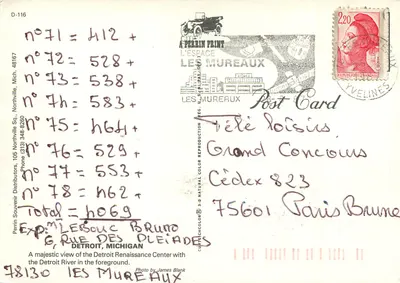 D-116
n° 71 = 412 +
n° 72 = 528 +
n° 73 = 538 +
n° 74 = 583 +
n° 75 = 464 +
n° 76 = 529 +
n° 77 = 553 +
n° 78 = 462 +
Total = 4069
Exp: LEBOUC BRUNO
6, RUE DES PLEIADES
78130 LES MUREAUX
DETROIT, MICHIGAN
A majestic view of the Detroit Renaissance Center with
the Detroit River in the foreground.
Photo by James Blank
Perrin Souvenir Distributors, 105 Northville Sq., Northville, Mich. 48167
A PERRIN PRINT
L'ESPACE
LES MUREAUX
LES MUREAUX
2,20
YVELINES
Post Card
Télé loisirs
Grand Concours
Cédex 823
75601 Paris Brune